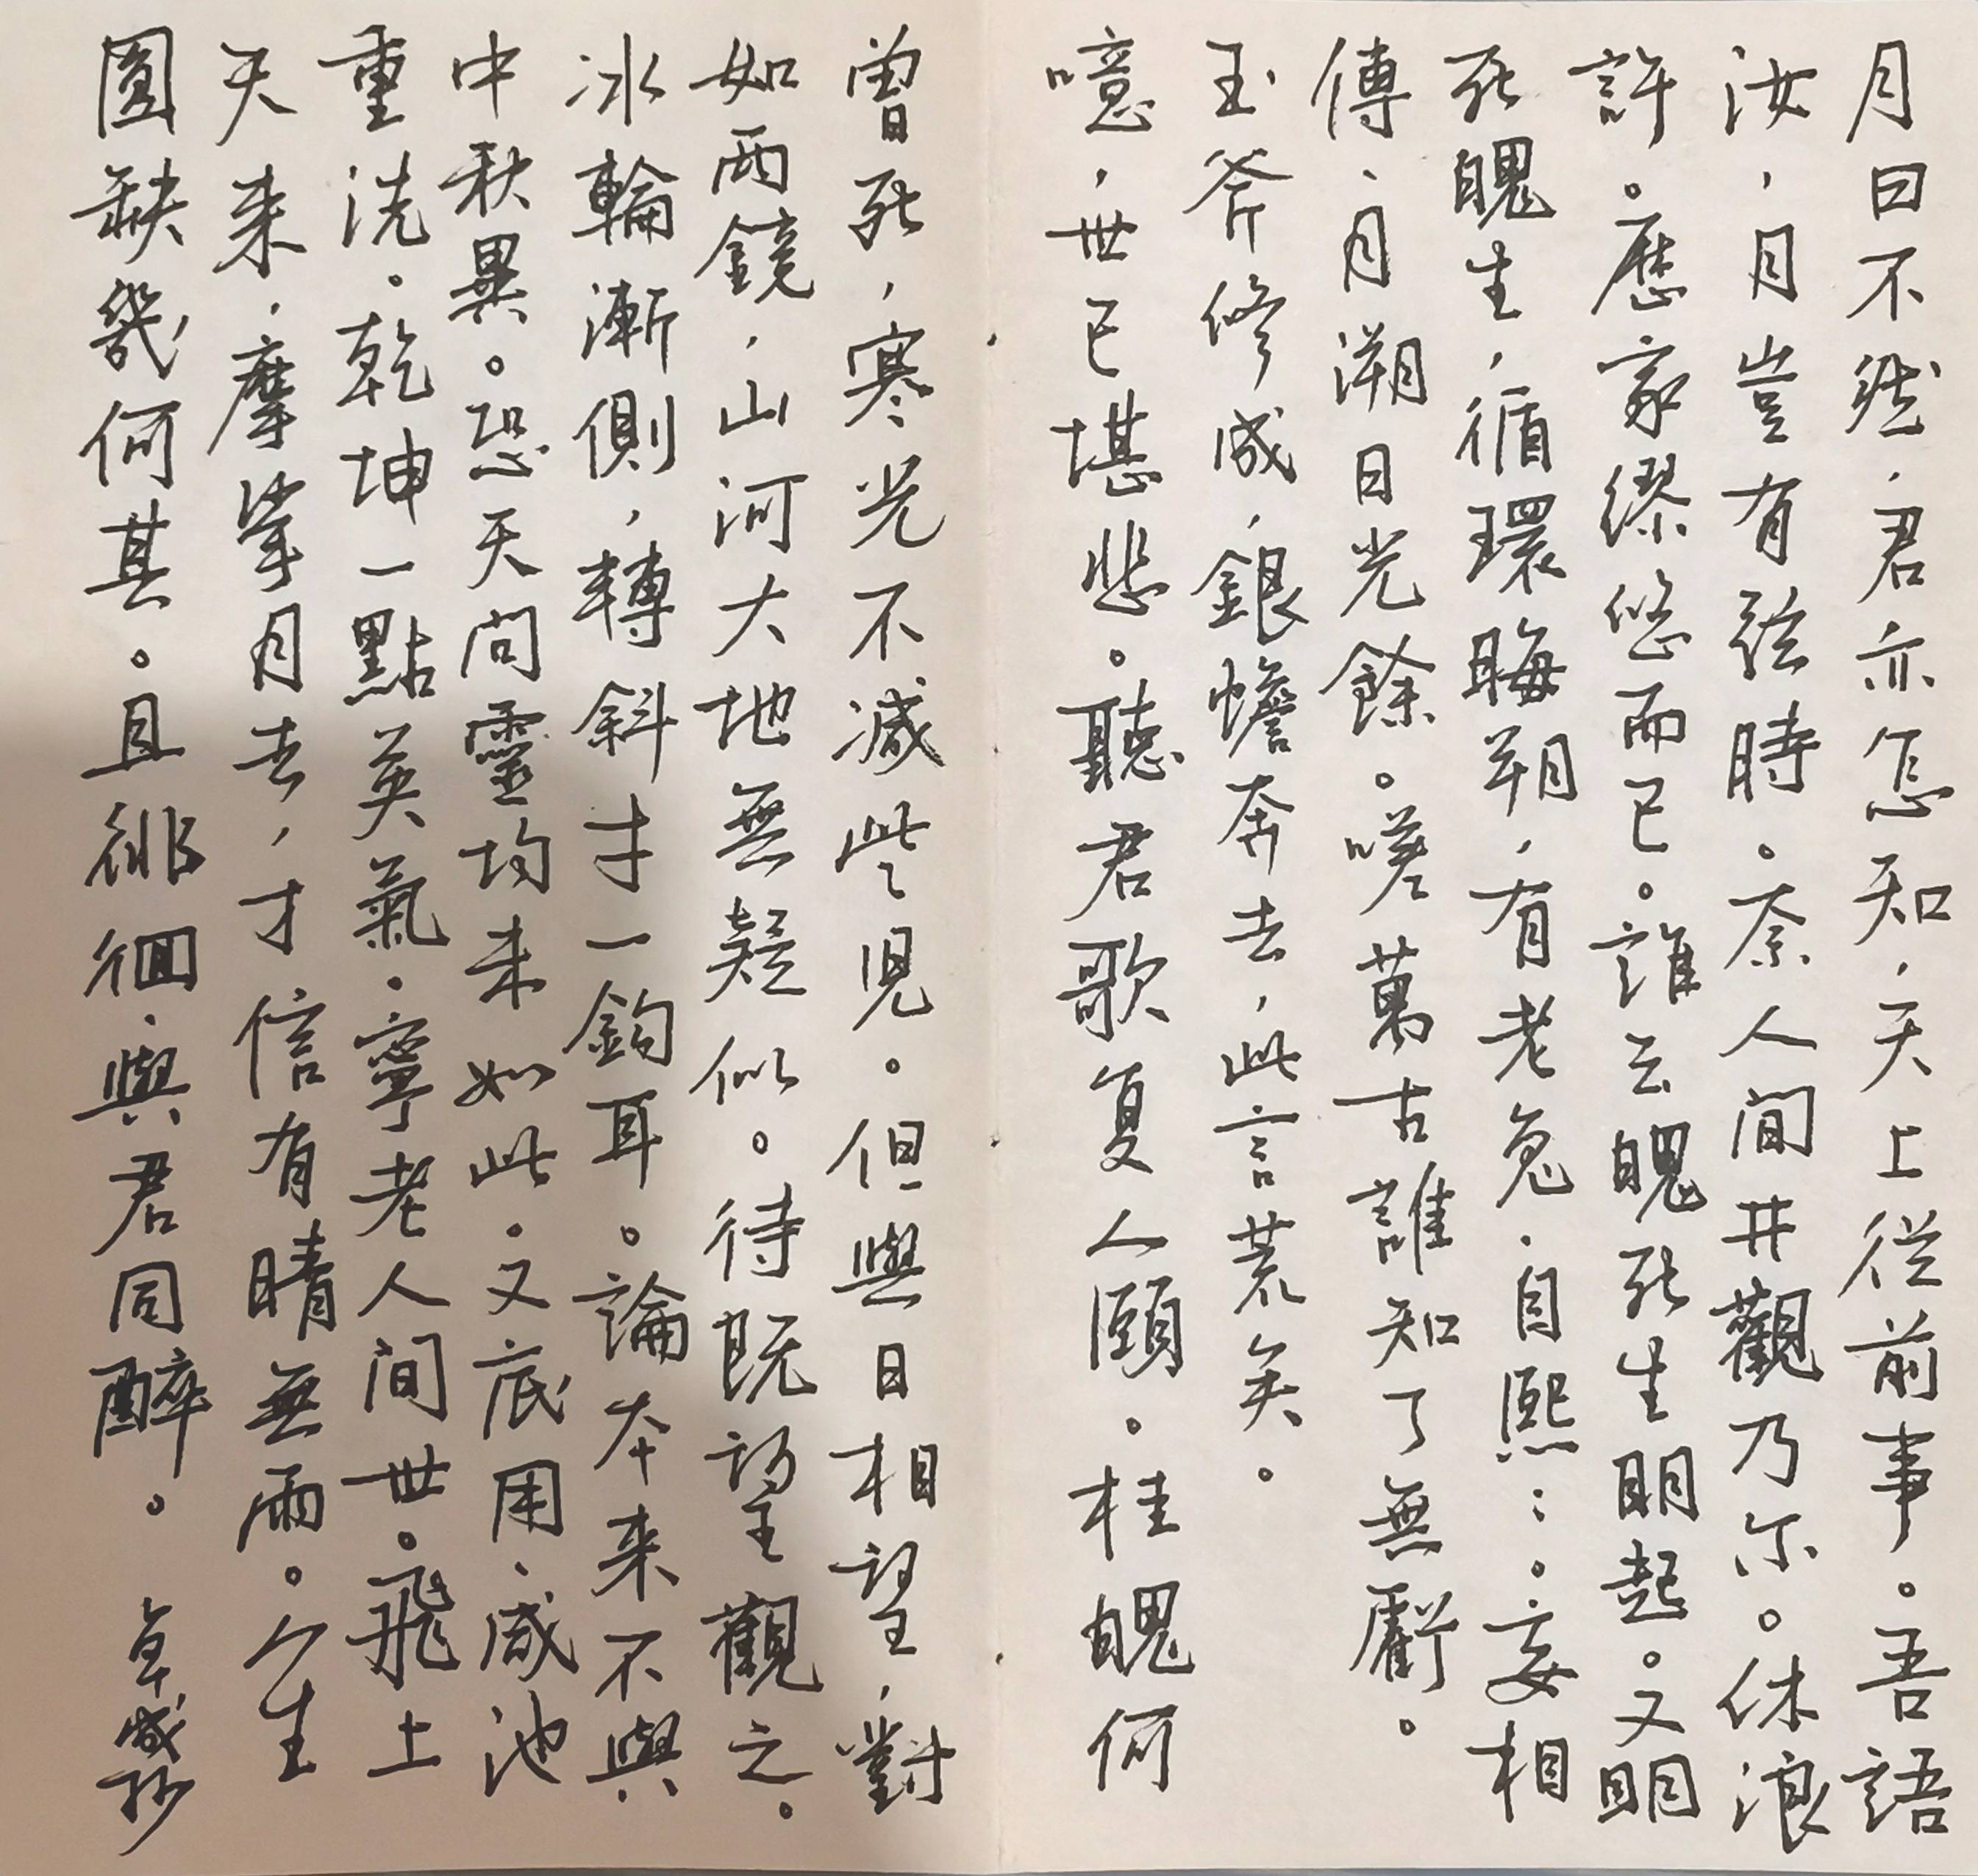 月曰不然，君亦怎知，天上從前事。吾語
汝，月豈有弦時。奈人間井觀乃尔。休浪
許。歷家繆悠而已。誰云魄死生明起。又明
死魄生，循環晦朔，有老兔、自熙熙。妄相
傳、月溯日光餘。嗟萬古誰知了無虧。
玉斧修成，銀蟾奔去，此言荒矣。
噫，世已堪悲。聽君歌复人頤。桂魄何
曾死，寒光不減些兒。但與日相望，對
如兩鏡，山河大地無疑似。待既望觀之。
冰輪漸側，轉斜才一鈎耳。論本来不與
中秋異。恐天问靈均未如此。又底用、咸池
重洗。乾坤一點英氣。寧老人间世。飛上
天来，摩挲月去，才信有晴無雨。人生
圆缺幾何其。且徘徊、與君同醉。